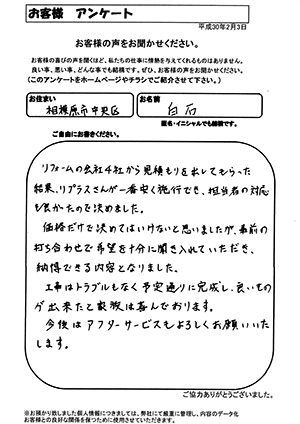 お客様 アンケート
平成30年2月3日
お客様の声をお聞かせください。
お客様の喜びの声を聞くほど、私たちの仕事に情熱を与えてくれるものはありません。
良い事、悪い事、どんな事でも結構です。ぜひ、お客様の声をお聞かせください。
(このアンケートをホームページやチラシでご紹介させて下さい。)
お住まい
相模原市中央区
お名前
白石
匿名・イニシャルでも結構です。
ご自由にお書きください。
リフォームの会社4社から見積もりを出してもらった
結果、リプラスさんが一番安く施行でき、担当者の対応
も良かったので決めました。
価格だけで決めてはいけないと思いましたが、事前の
打ち合わせで希望を十分に聞き入れていただき、
納得できる内容となりました。
工事はトラブルもなく予定通りに完成し、良いもの
が出来たと家族は喜んでおります。
今後はアフターサービスもよろしくお願いいた
します。
ご協力ありがとうございました。
※お預かり致しました個人情報につきましては、弊社にて厳重に管理し、内容のデータ化
お客様との良好な関係を保つために使用させていただきます。